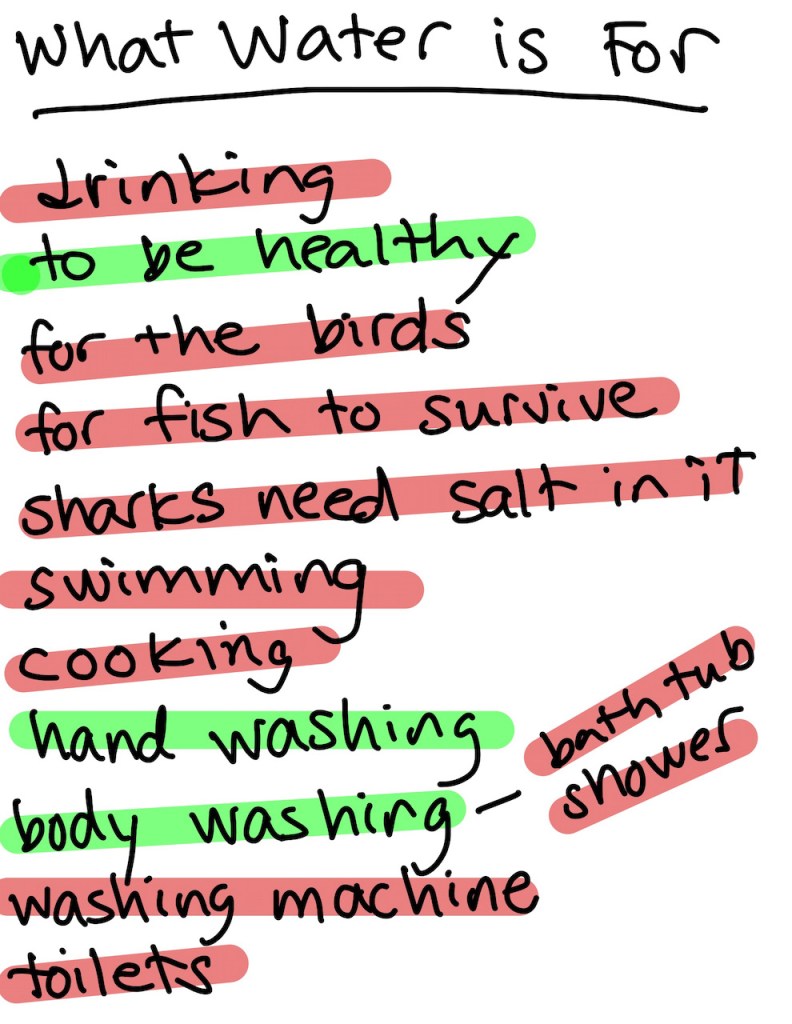 What Water is For
drinking
to be healthy
for the birds
for fish to survive
sharks need salt in it
swimming
cooking
hand washing
body washing - bath tub
shower
washing machine
toilets